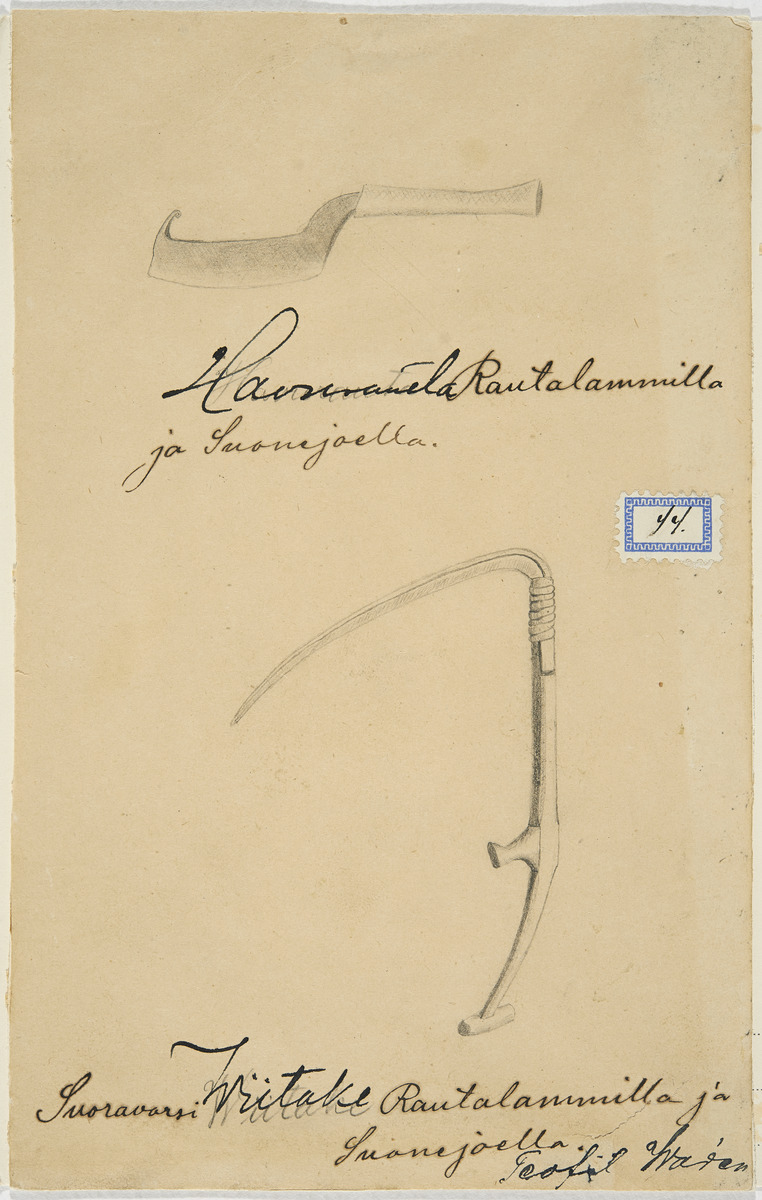 Rautalammilla
ja Suonejoella.
44.
Suoravarsi Wiitake Rautalammilla ja
Suonejoella.
Teofil